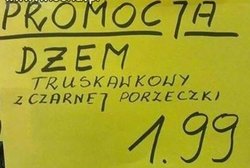 PROMOCJA
DZEM
TRUSKAWKOWY
Z CZARNEJ PORZECZKI
1.99